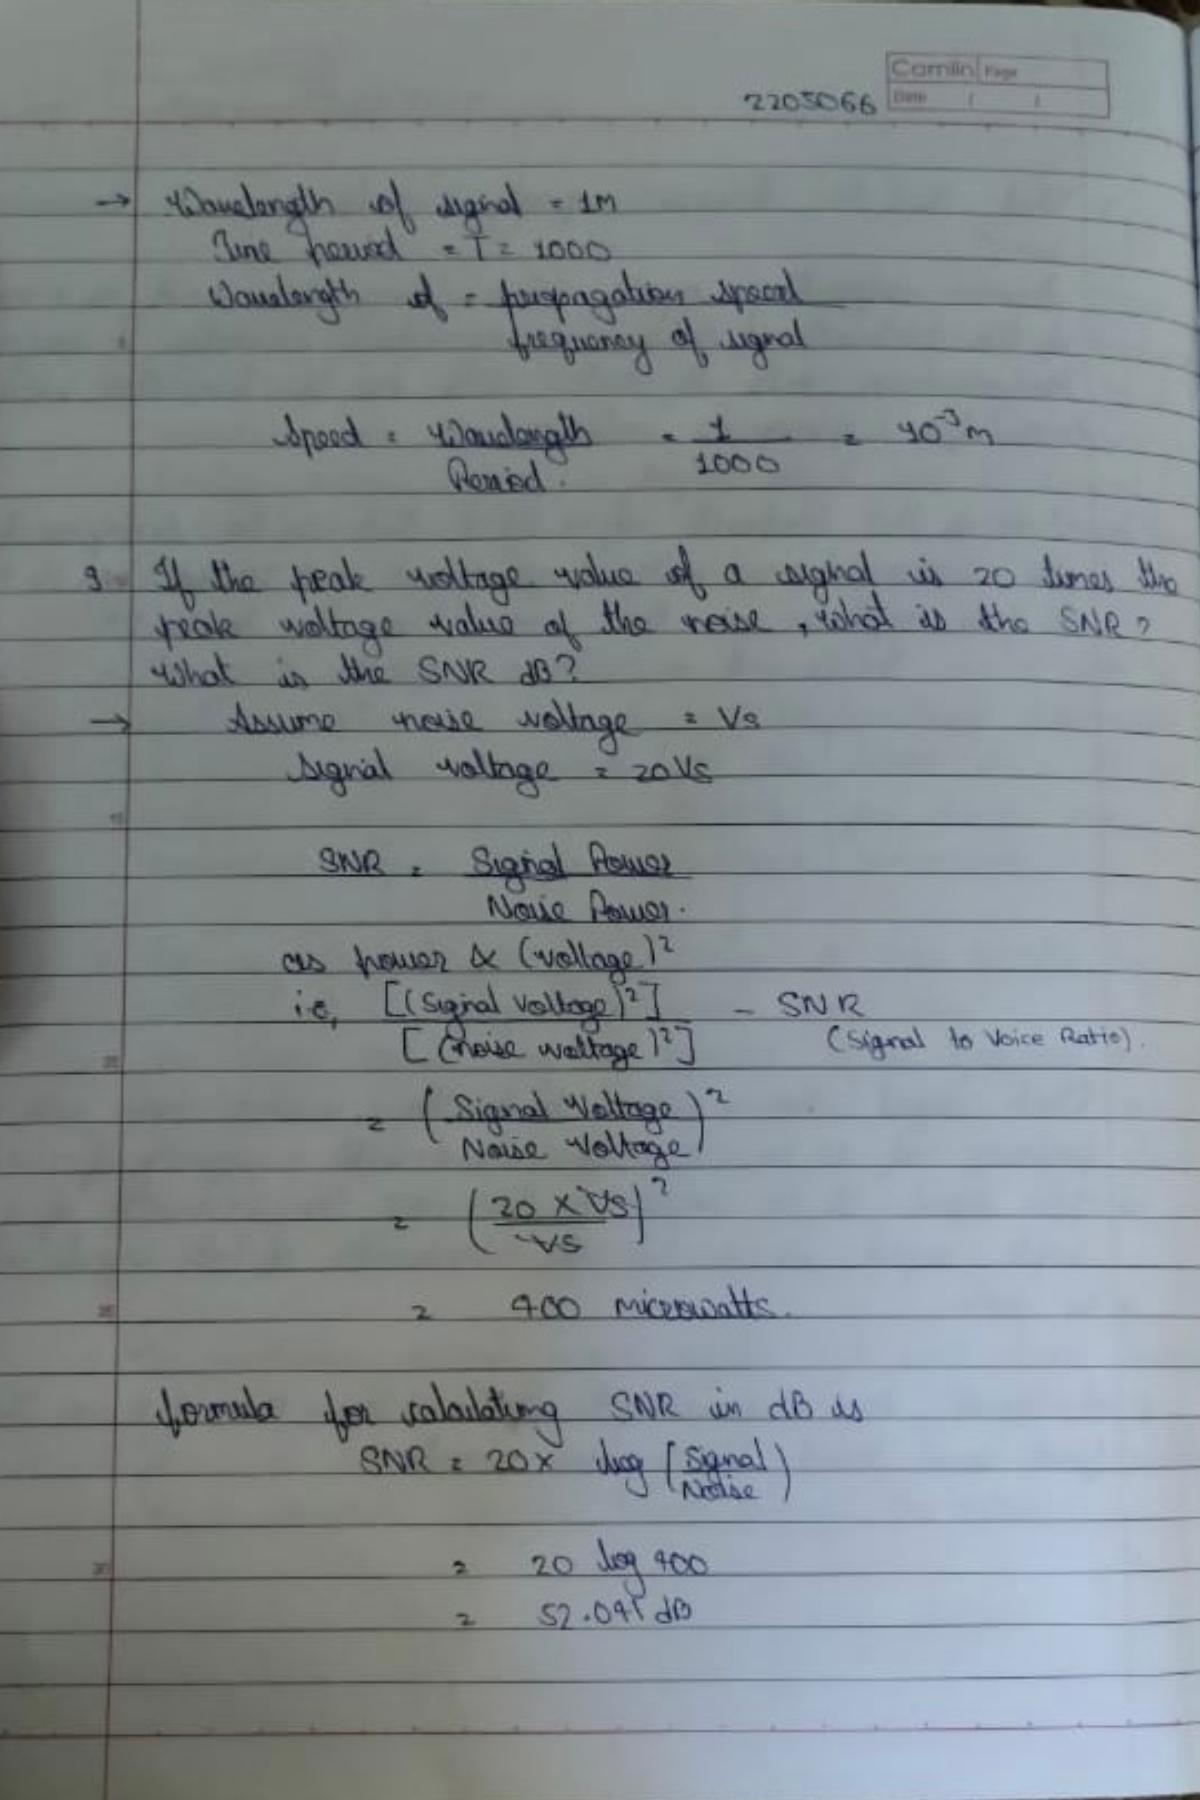 Camlin Page
Date / /
2205066
→ Wavelength of signal = 1M
Time period = T = 1000
Wavelength of = propagation speed
frequency of signal
Speed = Wavelength = 1 = 10⁻³m
Period. 1000
9 If the peak voltage value of a signal is 20 times the
peak voltage value of the noise, what is the SNR?
What is the SNR dB?
→ Assume noise voltage = Vs
Signal voltage = 20Vs
SNR = Signal Power
Noise Power.
as power ∝ (voltage)²
i.e, [(Signal voltage)²] - SNR
[(noise voltage)²] (Signal to Voice Ratio).
= (Signal Voltage)²
Noise Voltage
= (20 x Vs)²
Vs
= 400 microwatts.
formula for calculating SNR in dB is
SNR = 20x log (Signal)
Noise
= 20 log 400
= 52.041 dB